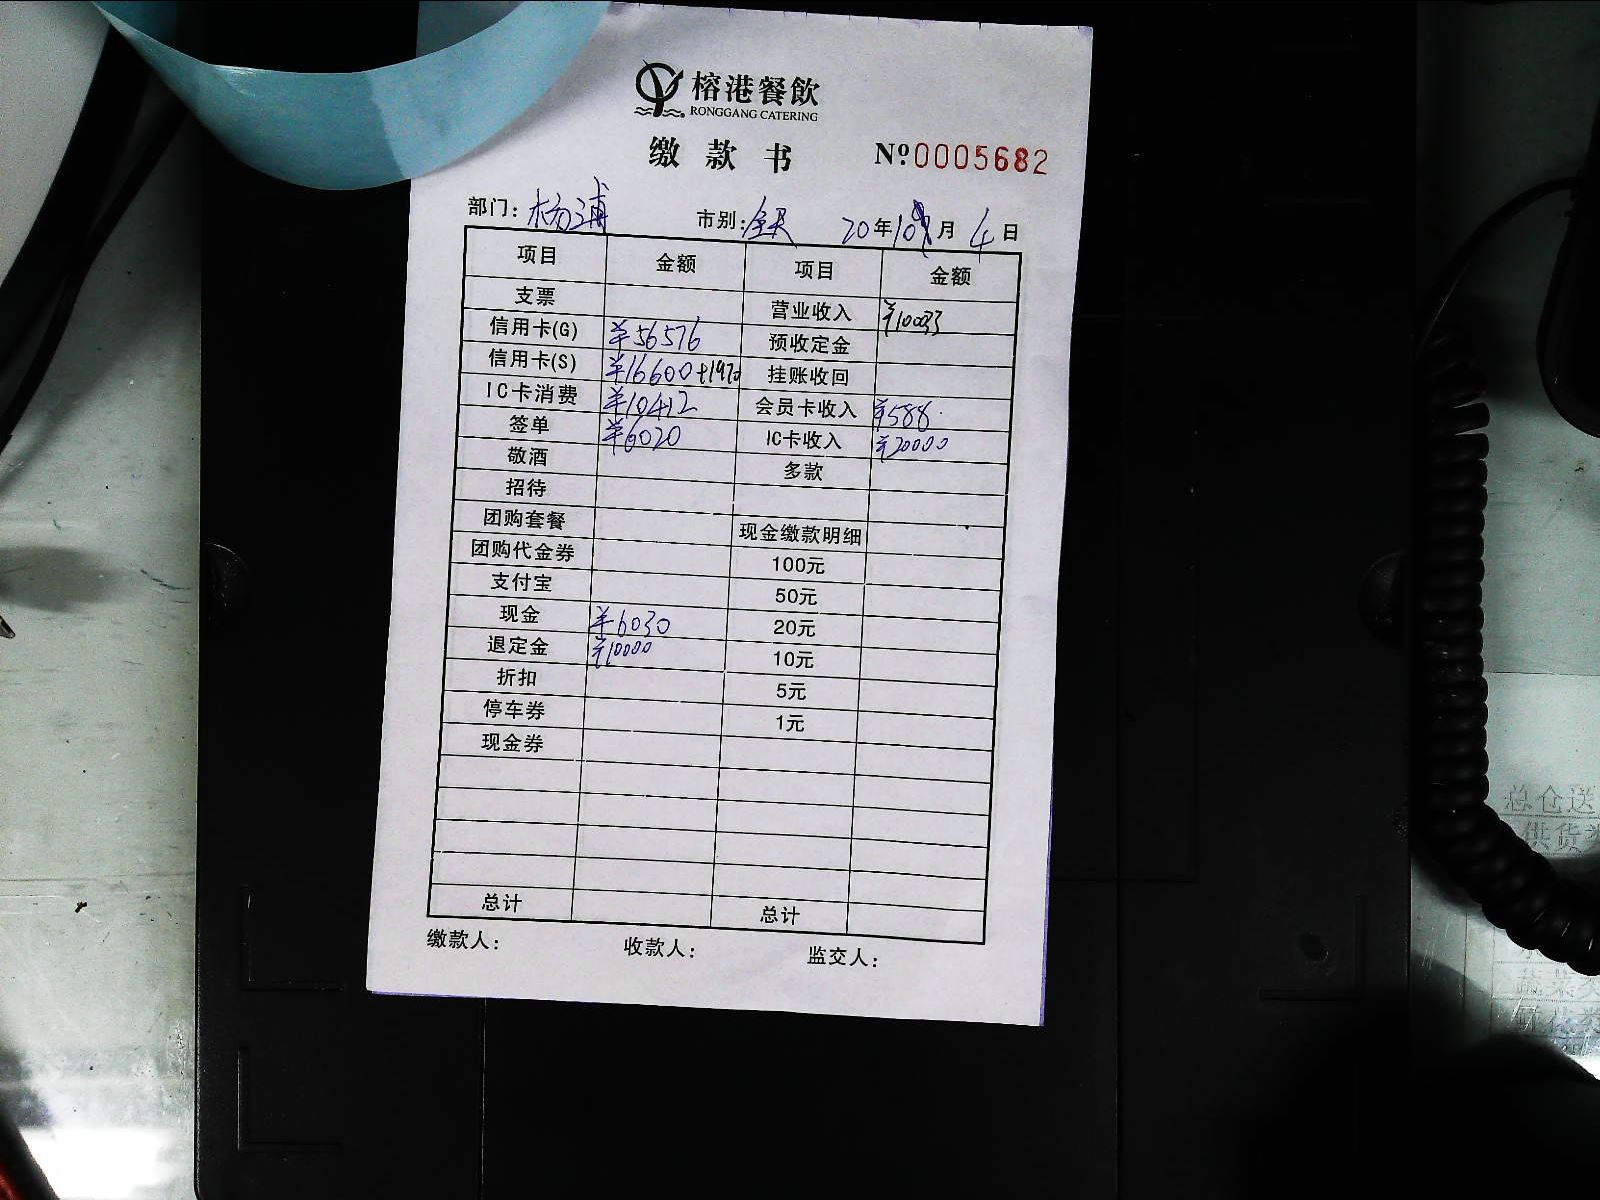 榕港餐飲
RONGGANG CATERING
缴款书 №0005682
部门：杨浦 市别：全天 20年10月4日
项目 金额 项目 金额
支票 营业收入
信用卡(G) ¥56576 预收定金
信用卡(S) ¥16600 挂账收回
IC卡消费 ¥10412 会员卡收入 ¥588
签单 ¥6020 IC卡收入 ¥20000
敬酒 多款
招待
团购套餐 现金缴款明细
团购代金券 100元
支付宝 50元
现金 ¥6030 20元
退定金 ¥10000 10元
折扣 5元
停车券 1元
现金券
总计 总计
缴款人： 收款人： 监交人：
总仓送
供货
蔬菜类